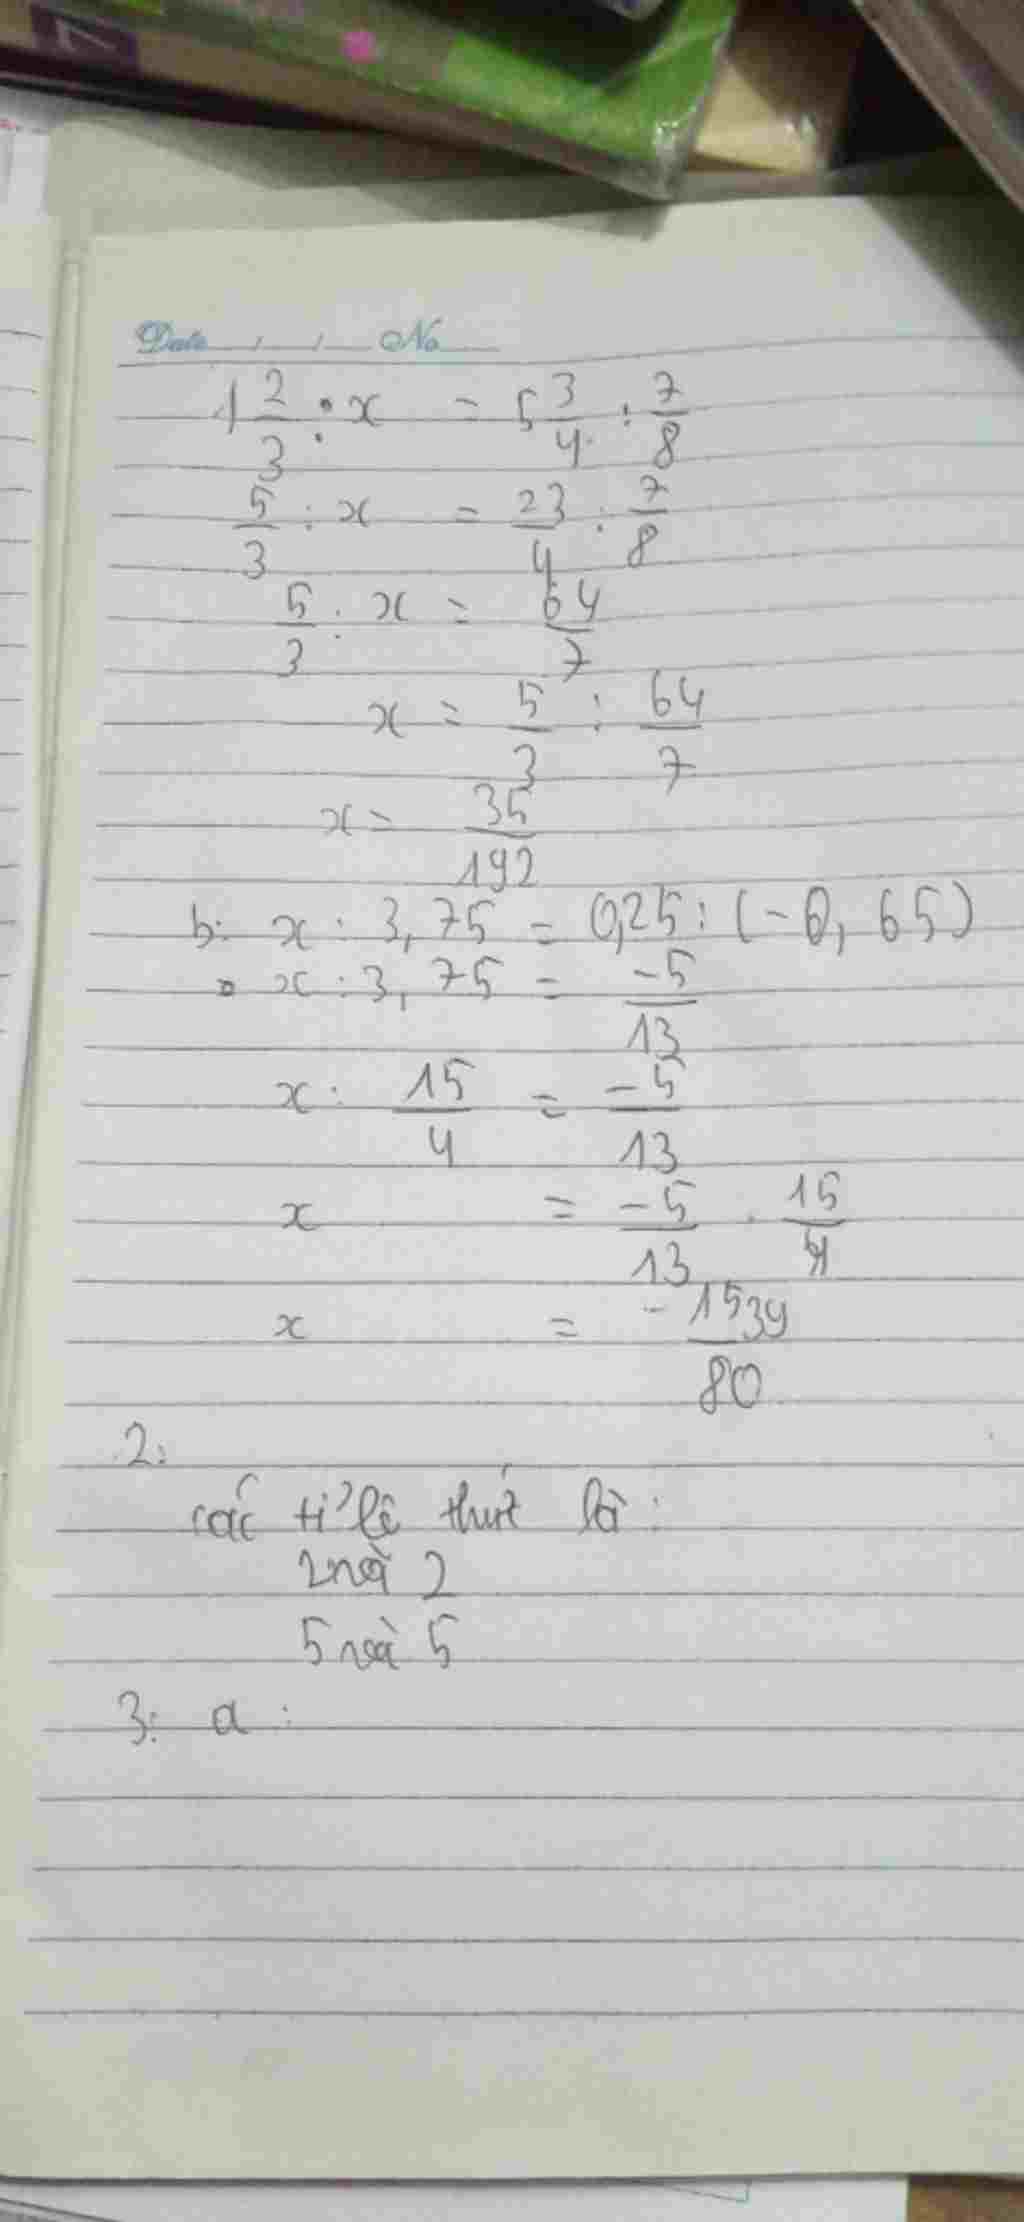 Date / / No
1 2/3 : x = 5 3/4 : 7/8
5/3 : x = 23/4 : 7/8
5/3 : x = 64/7
x = 5/3 : 64/7
x = 35/192
b: x : 3,75 = 0,25 : (-0,65)
x : 3,75 = -5/13
x : 15/4 = -5/13
x = -5/13 . 15/4
x = -1539/80
2:
các tỉ lệ thức là:
2 và 2
5 và 5
3: a: